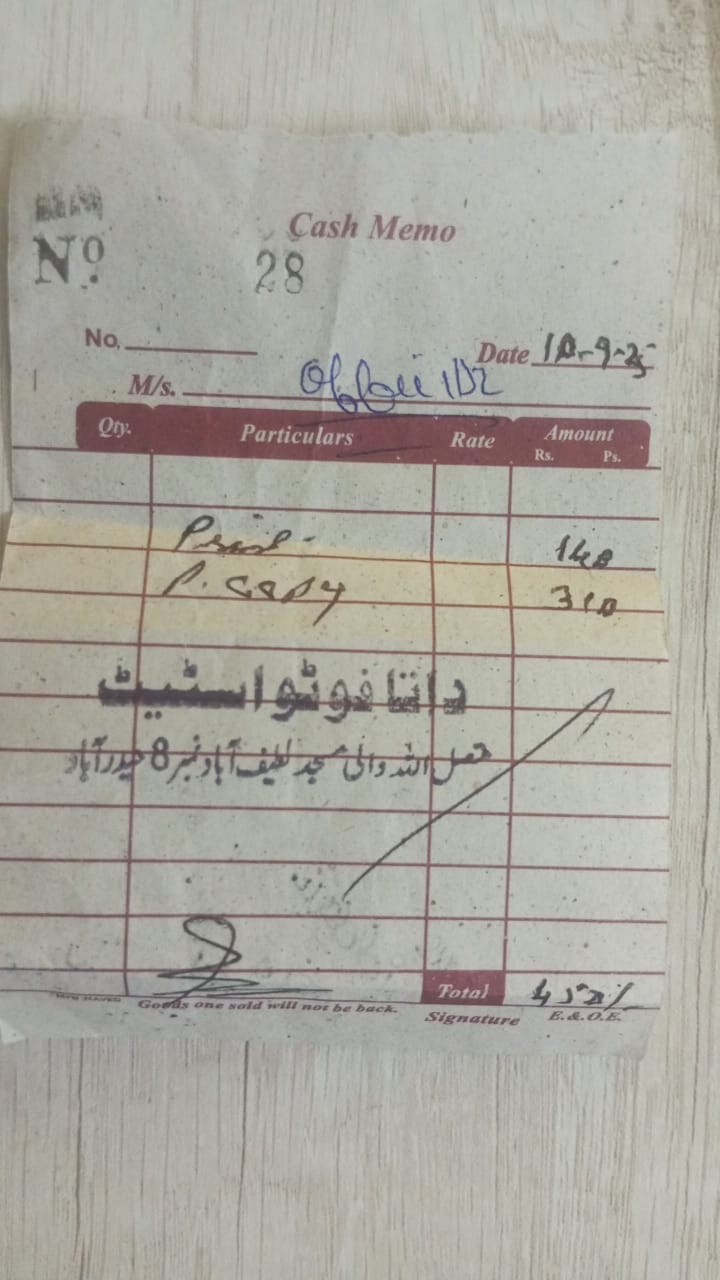 Cash Memo
Nº 28
No.
Date 10-9-25
M/s.
Qty. Particulars Rate Amount
Rs. Ps.
Print - 140
P. Copy 310
داتا فوٹو اسٹیٹ
متصل اللہ والی مسجد لطیف آباد نمبر 8 حیدرآباد
Total 450/-
Goods one sold will not be back.
Signature E.&.O.E.